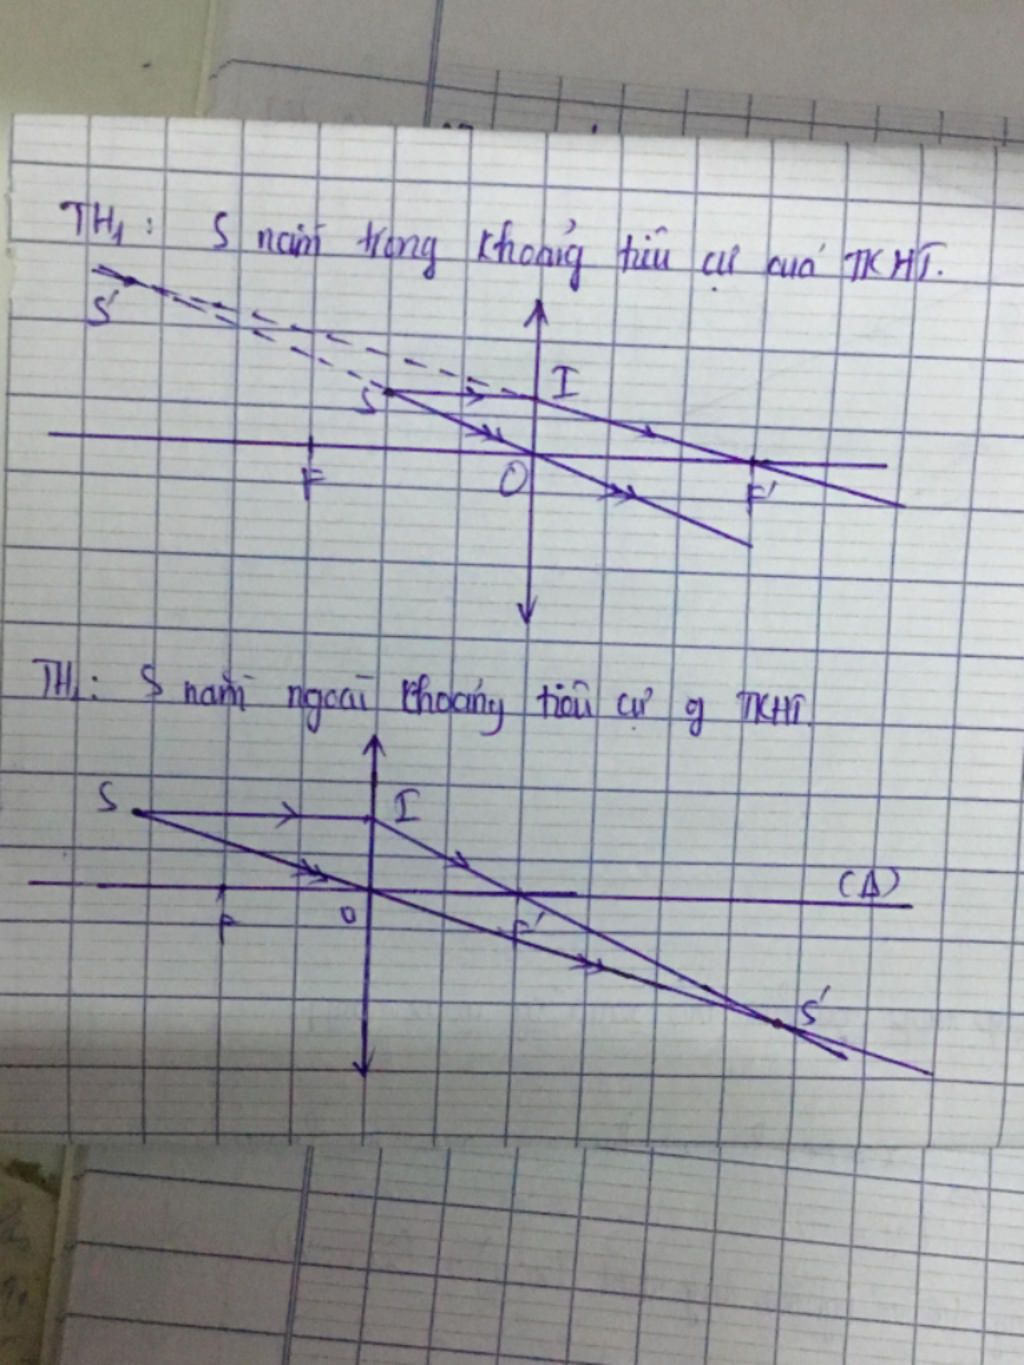 TH1: S nằm trong khoảng tiêu cự của TKHT.
S'
I
S
F
O
F'
TH2: S nằm ngoài khoảng tiêu cự g TKHT.
S
I
(Δ)
F
O
F'
S'